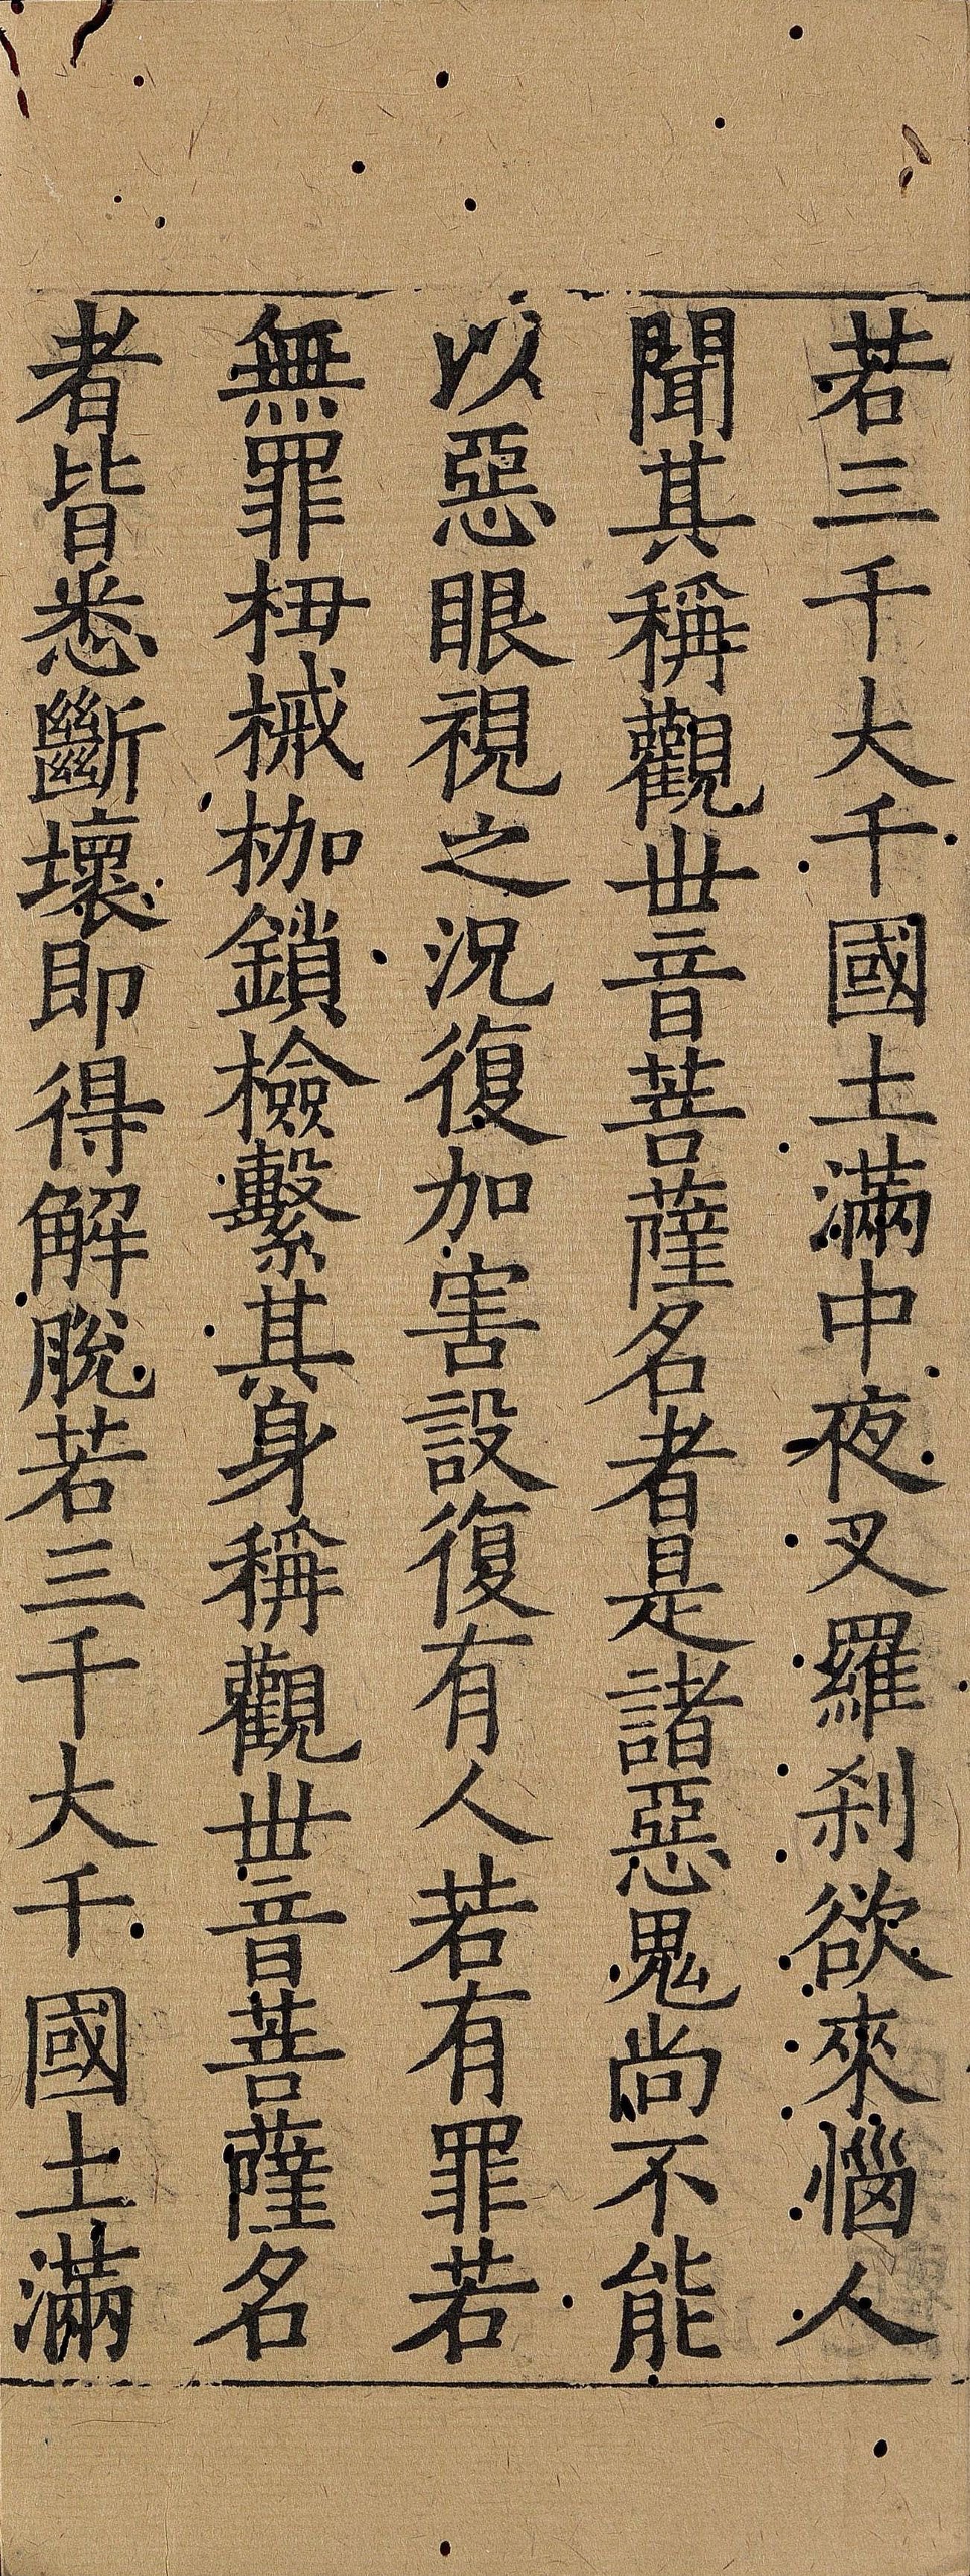 若三千大千國土滿中夜叉羅刹欲來惱人
聞其稱觀世音菩薩名者是諸惡鬼尚不能
以惡眼視之況復加害設復有人若有罪若
無罪杻械枷鎖檢繫其身稱觀世音菩薩名
者皆悉斷壞即得解脫若三千大千國土滿